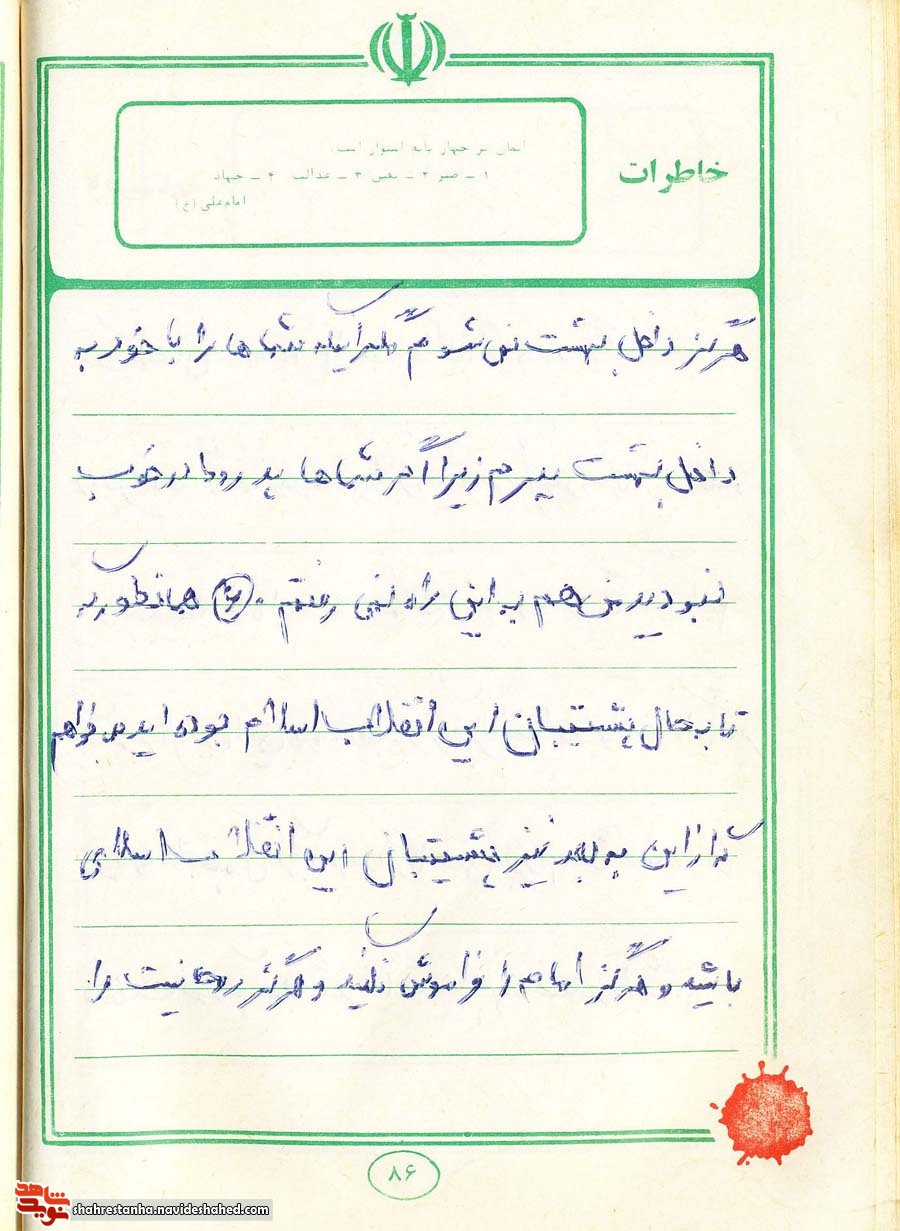 خاطرات
ایمان بر چهار پایه استوار است:
۱ ـ صبر ۲ ـ یقین ۳ ـ عدالت ۴ ـ جهاد
امام علی (ع)
هرگز داخل بهشت نمی شوم مگر اینکه شماها را با خود به
داخل بهشت ببرم زیرا اگر شماها پدر و مادر خوب
نبودید من هم به این راه نمی رفتم . ۶ همانطور که
تا به حال پشتیبان این انقلاب اسلام بوده اید می خواهم
که از این به بعد نیز پشتیبان این انقلاب اسلامی
باشید و هرگز امام را فراموش نکنید و هرگز روحانیت را
۸۶
نوید شاهد
shahrestanha.navideshahed.com